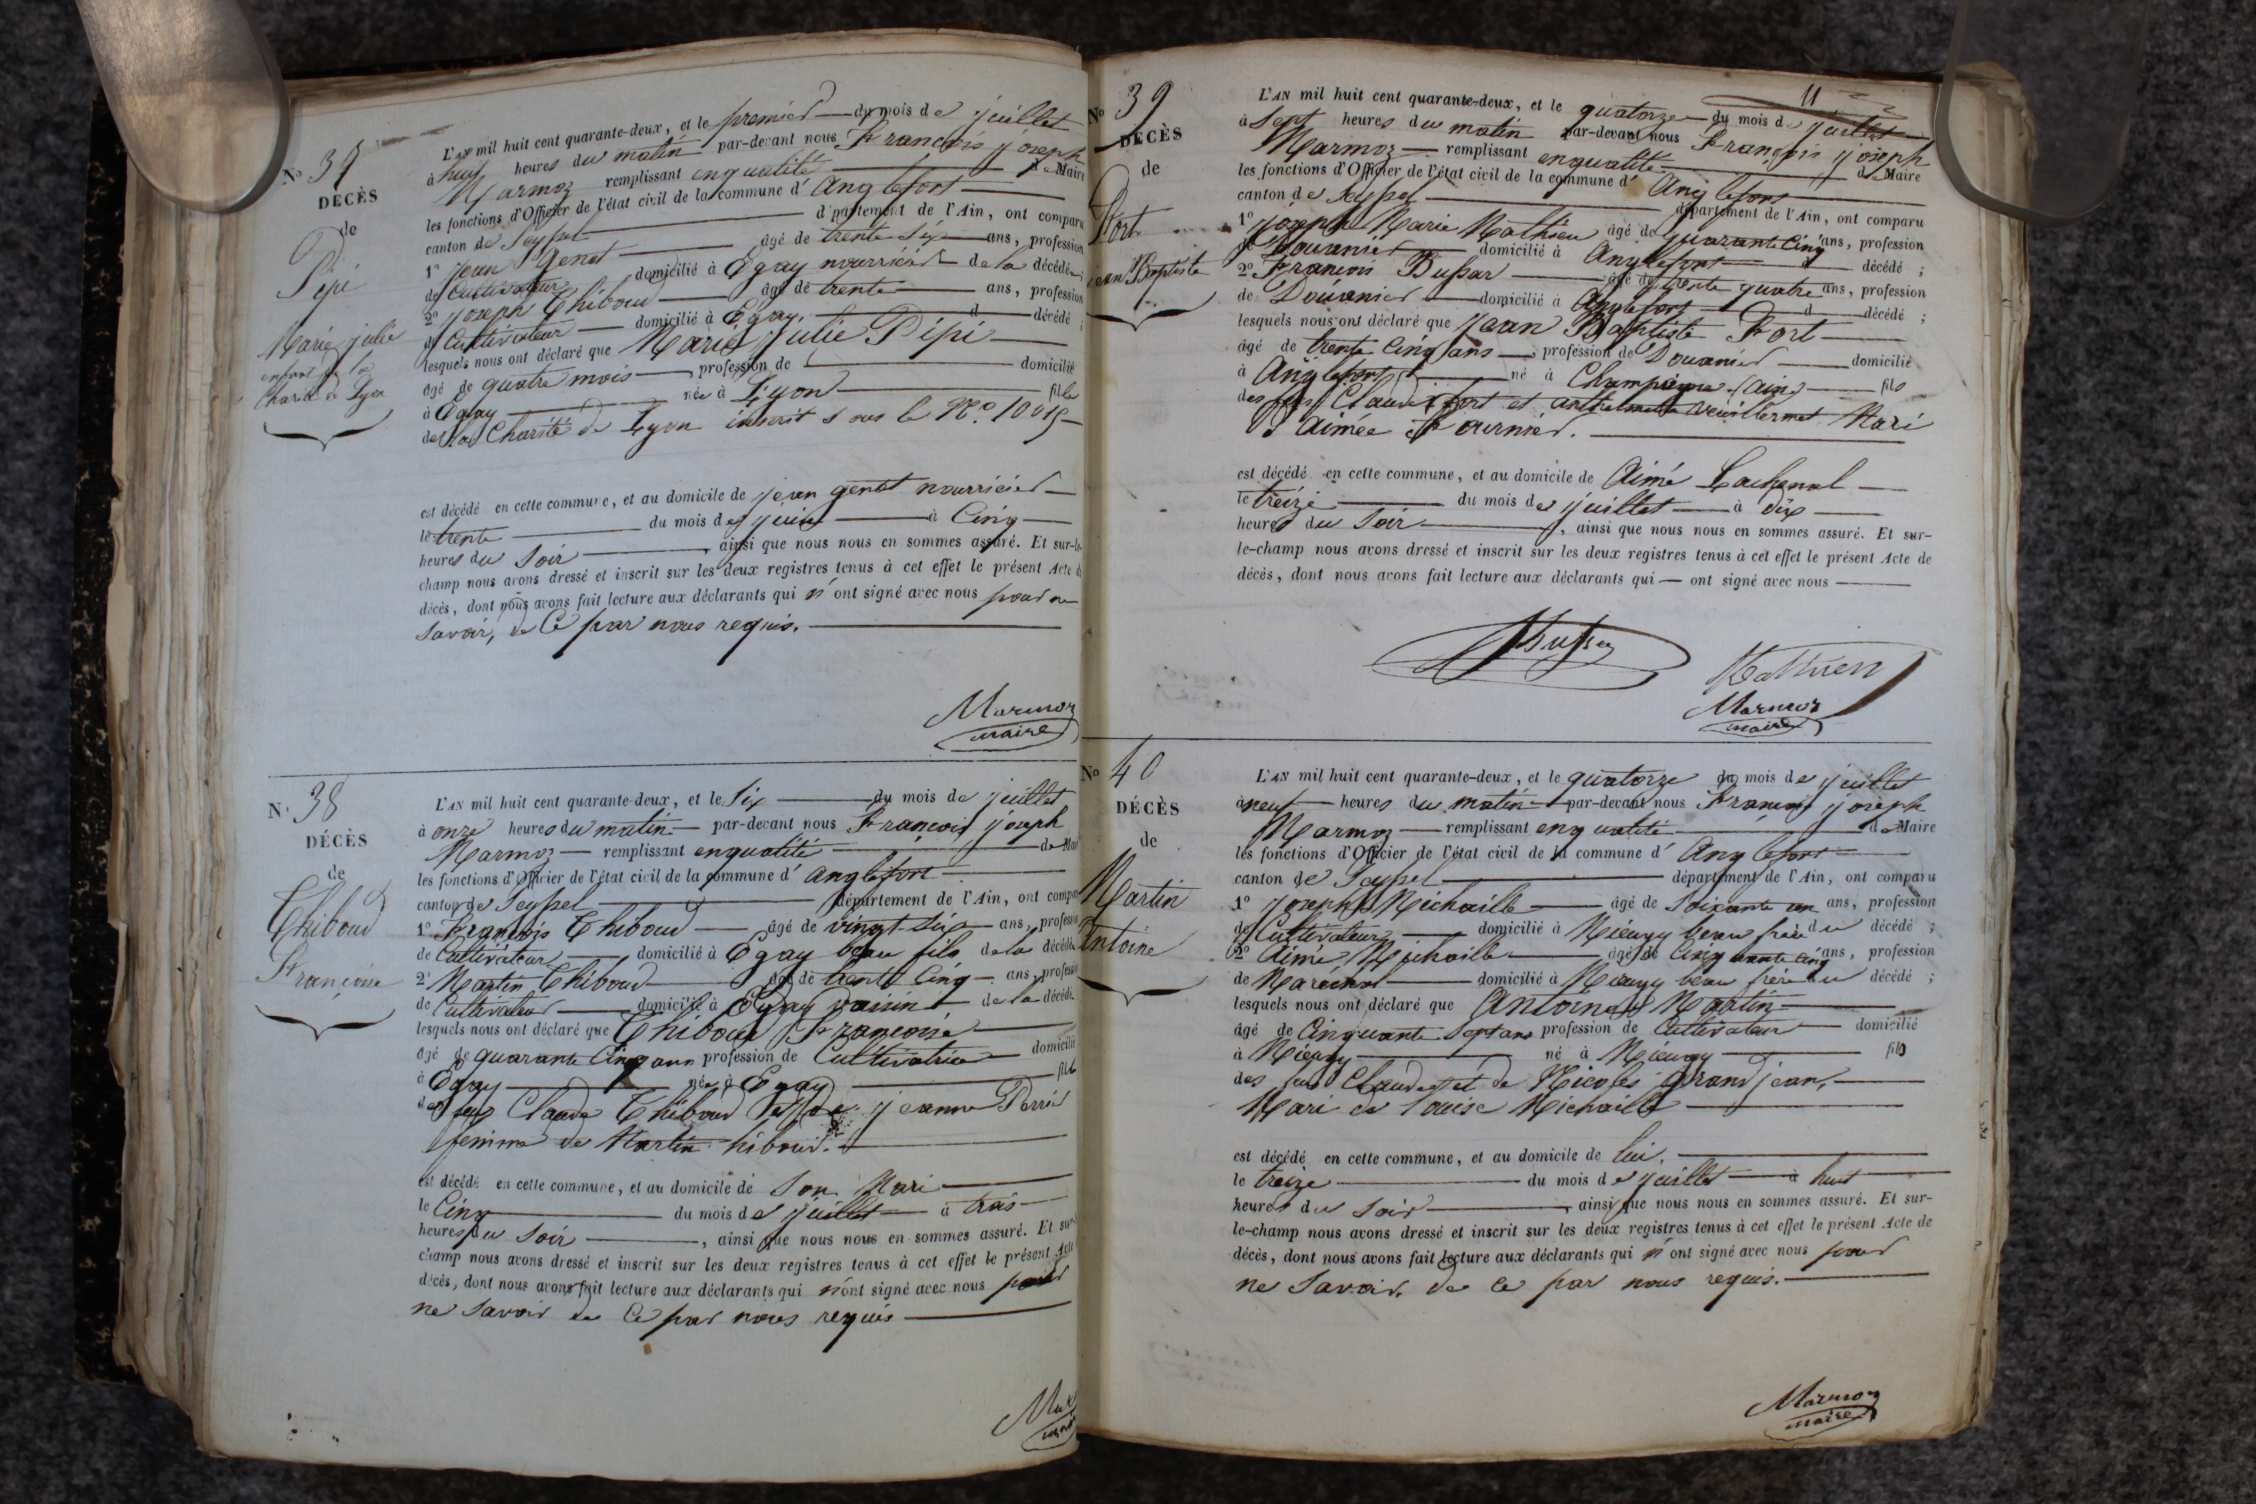 N° 37
DÉCÈS
de
Pepi
Marie julie
enfant de la
Charité de Lyon
L'AN mil huit cent quarante-deux, et le premier du mois de juillet
à huit heures du matin par-devant nous François joseph
Marmoz remplissant en qualité de Maire
les fonctions d'Officier de l'état civil de la commune d' Anglefort
canton de Seyssel département de l'Ain, ont comparu
1° Jean Genet âgé de trente six ans, profession
de Cultivateur domicilié à Egay nourricier de la décédée;
2° joseph Thiboud âgé de trente ans, profession
de Cultivateur domicilié à Egay. d décédé ;
lesquels nous ont déclaré que Marie Julie Pépi
âgé de quatre mois profession de domicilié
à Egay née à Lyon fille
de la Charité de Lyon inscrit sous le N°. 10015
est décédé en cette commune, et au domicile de jean genet nourricier
le trente du mois de juin à Cinq
heures du Soir , ainsi que nous nous en sommes assuré. Et sur-le-
champ nous avons dressé et inscrit sur les deux registres tenus à cet effet le présent Acte de
décès, dont nous avons fait lecture aux déclarants qui n'ont signé avec nous pour ne
Savoir, de Ce par nous requis.
Marmoz
maire
N° 38
DÉCÈS
de
Thiboud
Françoise
L'AN mil huit cent quarante-deux, et le Six du mois de juillet
à onze heures du matin par-devant nous François joseph
Marmoz remplissant en qualité de Mai
les fonctions d'Officier de l'état civil de la commune d' Anglefort
canton de Seyssel département de l'Ain, ont compa
1° François Thiboud âgé de vingt six ans, profession
de Cultivateur domicilié à Egay beau fils de la décédée
2° Martin Thiboud âgé de trente Cinq ans, profession
de Cultivateur domicilié à Egay voisin de la décédé
lesquels nous ont déclaré que Thiboud Françoise
âgé de quarante Cinq ans profession de Cultivatrice domicilié
à Egay née à Egay fille
des feus Claude Thiboud et de jeanne Perrin
femme de Martin hiboud.
est décédé en cette commune, et au domicile de Son Mari
le Cinq du mois de juillet à trois
heures du Soir , ainsi que nous nous en sommes assuré. Et sur
champ nous avons dressé et inscrit sur les deux registres tenus à cet effet le présent Acte
décès, dont nous avons fait lecture aux déclarants qui n'ont signé avec nous pour
ne Savoir de Ce par nous requis
N° 39
DÉCÈS
de
Fort
ean Baptiste
11
L'AN mil huit cent quarante-deux, et le quatorze du mois de juillet
à Sept heures du matin par-devant nous François joseph
Marmoz remplissant en qualité de Maire
les fonctions d'Officier de l'état civil de la commune d' Anglefort
canton de Seyssel département de l'Ain, ont comparu
1° joseph Marie Mathieu âgé de quarante Cinq ans, profession
de Douanier domicilié à Anglefort d décédé ;
2° François Bussar âgé de trente quatre ans, profession
de Douanier domicilié à Anglefort d décédé ;
lesquels nous ont déclaré que Jean Baptiste Fort
âgé de trente Cinq ans profession de Douanier domicilié
à Anglefort né à Champagne (ain) fils
des feus Claude fort et anthelmette Veuillermet Mari
d'Aimée Fournier.
est décédé en cette commune, et au domicile de Aimé Lachenal
le treize du mois de juillet à dix
heures du Soir , ainsi que nous nous en sommes assuré. Et sur-
le-champ nous avons dressé et inscrit sur les deux registres tenus à cet effet le présent Acte de
décès, dont nous avons fait lecture aux déclarants qui ont signé avec nous
Mathieu
Marmoz
maire
N° 40
DÉCÈS
de
Martin
Antoine
L'AN mil huit cent quarante-deux, et le quatorze du mois de juillet
à neuf heures du matin par-devant nous François joseph
Marmoz remplissant en qualité de Maire
les fonctions d'Officier de l'état civil de la commune d' Anglefort
canton de Seyssel département de l'Ain, ont comparu
1° joseph Michaille âgé de Soixante un ans, profession
de Cultivateur domicilié à Mieugy beau frère du décédé ;
2° Aimé Michaille âgé de Cinquante Cinq ans, profession
de Maréchal domicilié à Mieugy beau frère du décédé ;
lesquels nous ont déclaré que Antoine Martin
âgé de Cinquante Sept ans profession de Cultivateur domicilié
à Mieugy né à Mieugy fils
des feus Claude et de Nicole grandjean,
Mari de Louise Michaille
est décédé en cette commune, et au domicile de lui.
le treize du mois de juillet à huit
heures du Soir , ainsi que nous nous en sommes assuré. Et sur-
le-champ nous avons dressé et inscrit sur les deux registres tenus à cet effet le présent Acte de
décès, dont nous avons fait lecture aux déclarants qui n'ont signé avec nous pour
ne Savoir. de ce par nous requis.
Marmoz
maire